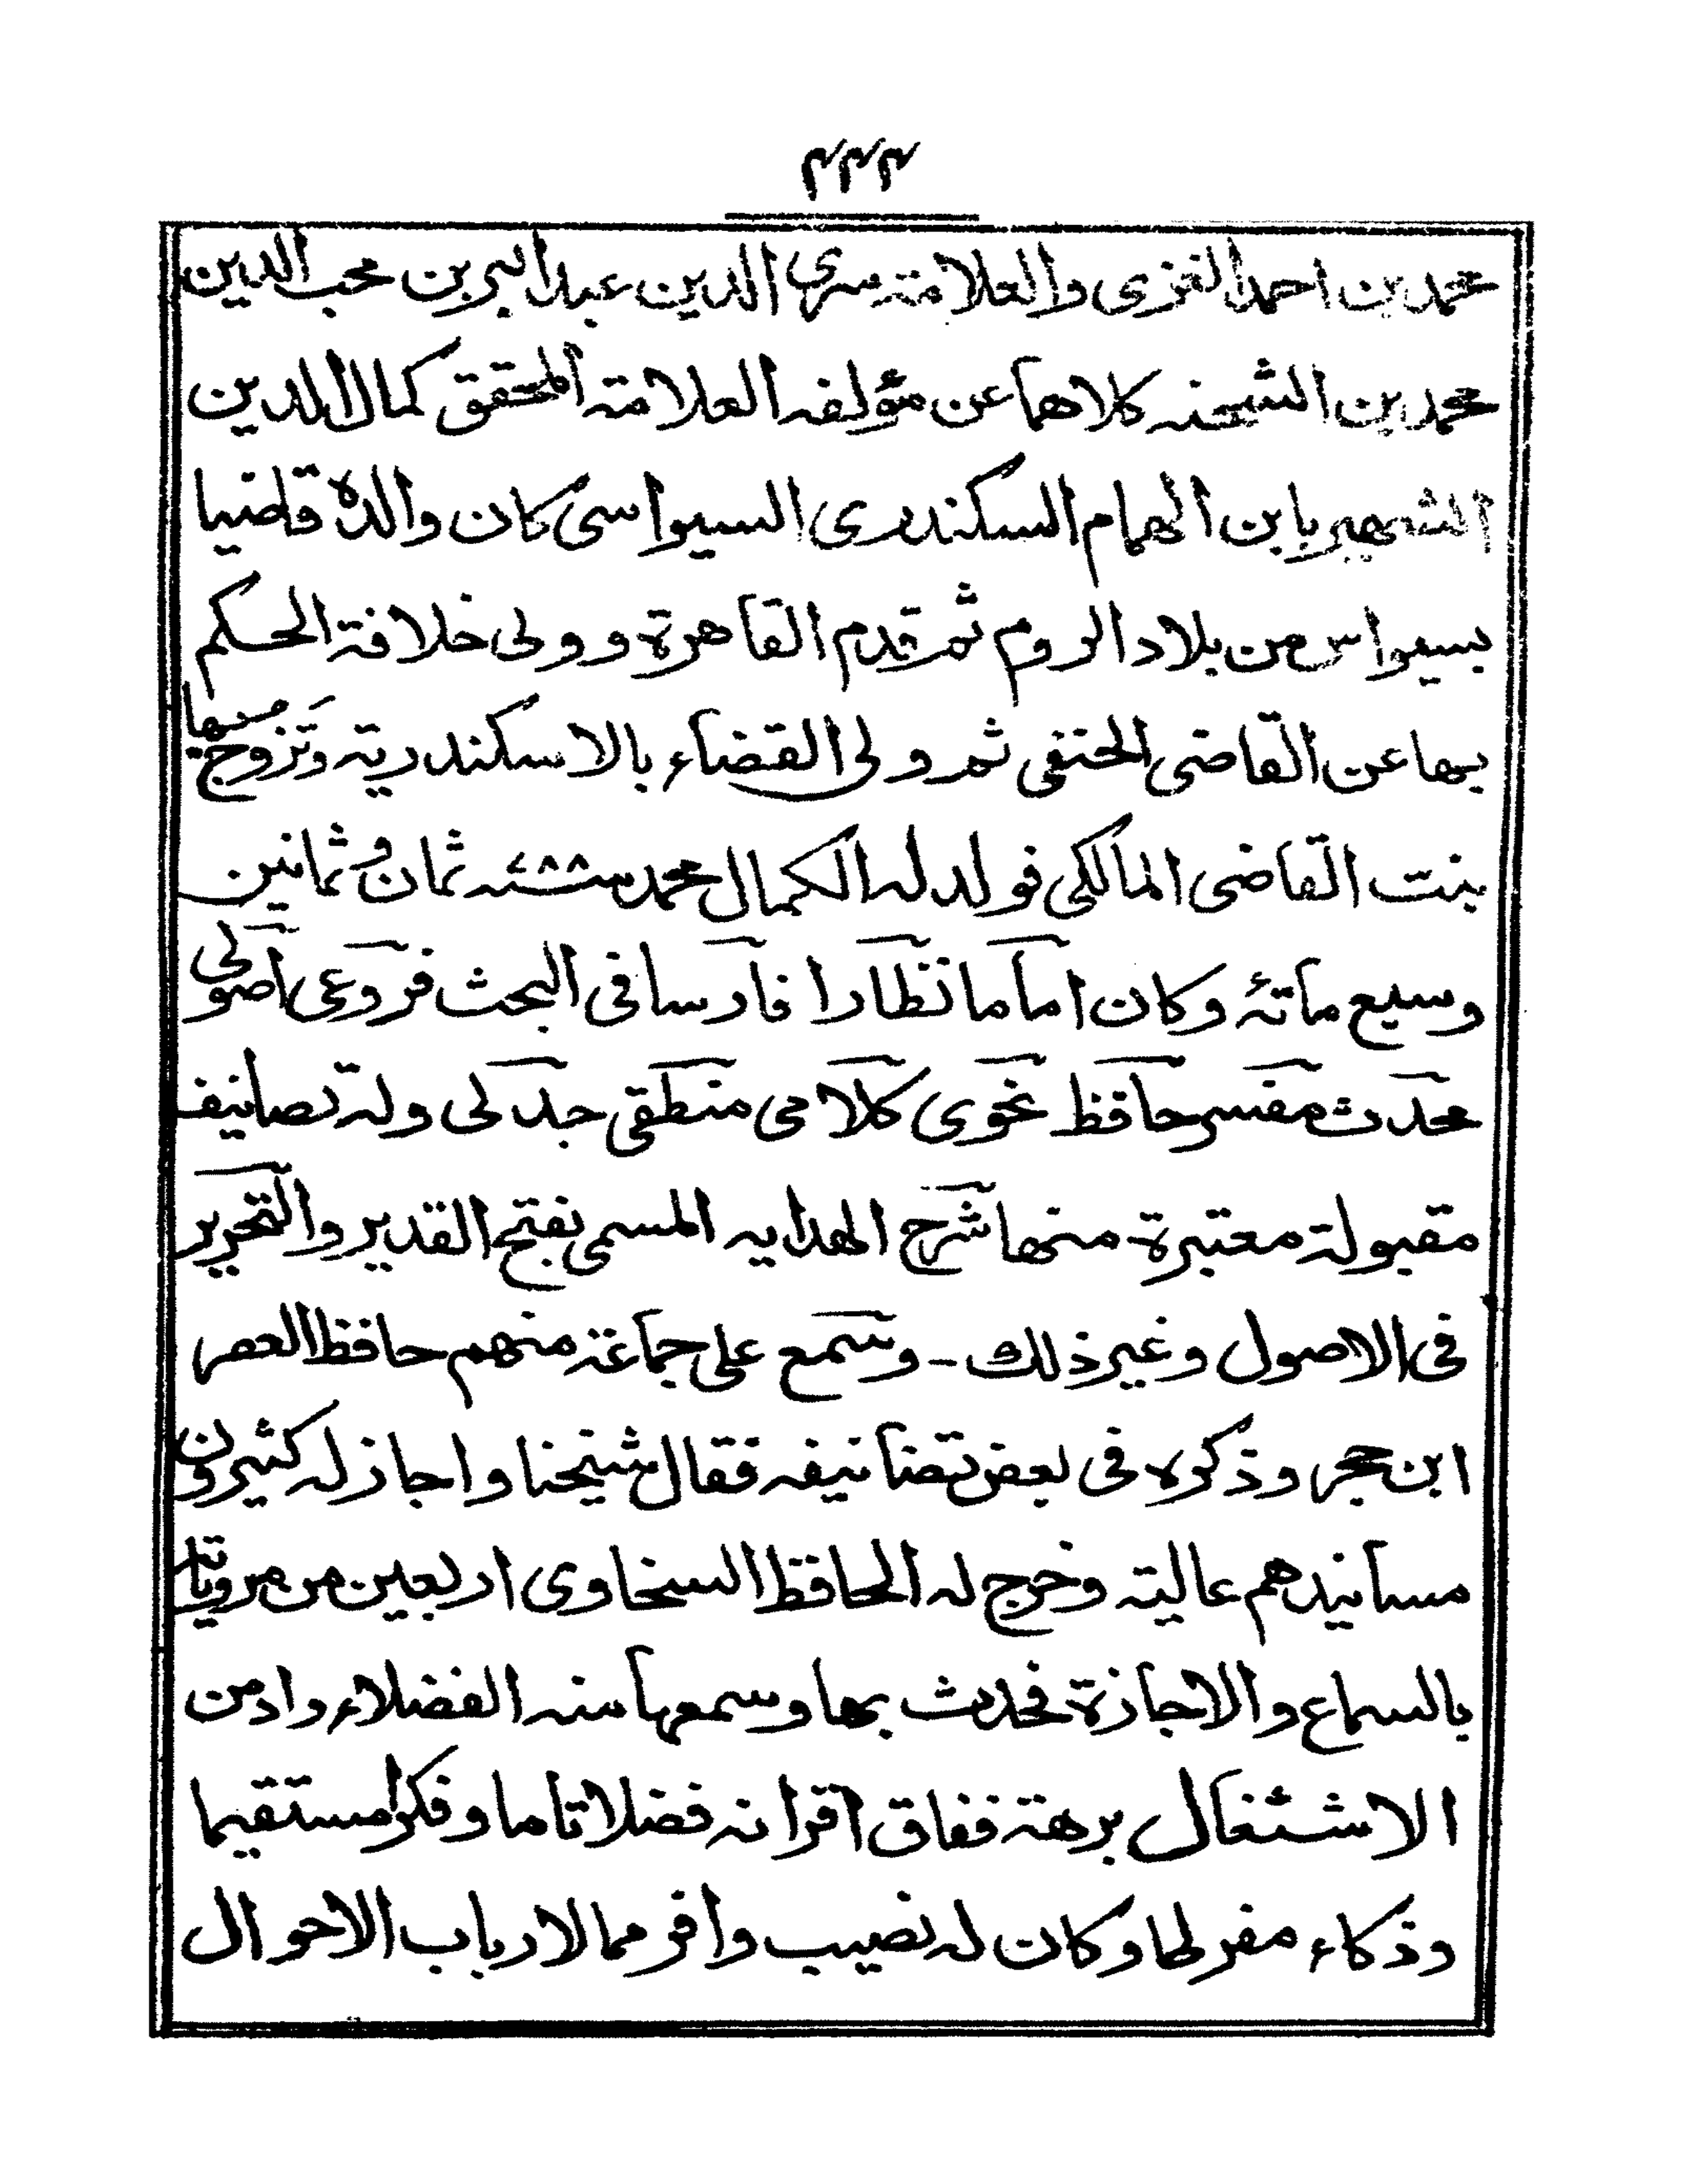 ۴۴۴
محمد بن احمد الغزى والعلامة سرى الدين عبد البر بن محب الدين
محمد بن الشحنه كلاهما عن مؤلفه العلامة المحقق كمال الدين
الشهير بابن الهمام السكندرى السيواسى كان والده قاضيا
بسيواس من بلاد الروم ثم قدم القاهرة و ولى خلافة الحكم
بها عن القاضى الحنفى ثم ولى القضاء بالاسكندرية وتزوج بها
بنت القاضى المالكى فولد له الكمال محمد سنة ۷۸۸ ثمان وثمانين
وسبع مائة وكان اماما نظارا فارسا فى البحث فروعى اصولى
محدث مفسر حافظ نحوى كلامى منطقى جدلى وله تصانيف
مقبولة معتبرة منها شرح الهدايه المسمى بفتح القدير والتحرير
فى الاصول وغير ذلك - وسمع على جماعة منهم حافظ العصر
ابن حجر وذكره فى بعض تصانيفه فقال شيخنا واجاز له كثيرون
مسانيدهم عالية وخرج له الحافظ السخاوى اربعين من مروياته
بالسماع والاجازة فحدث بها وسمعها منه الفضلاء وادمن
الاشتغال برهة ففاق اقرانه فضلا تاما وفكرا مستقيما
وذكاء مفرطا وكان له نصيب وافر مما لارباب الاحوال